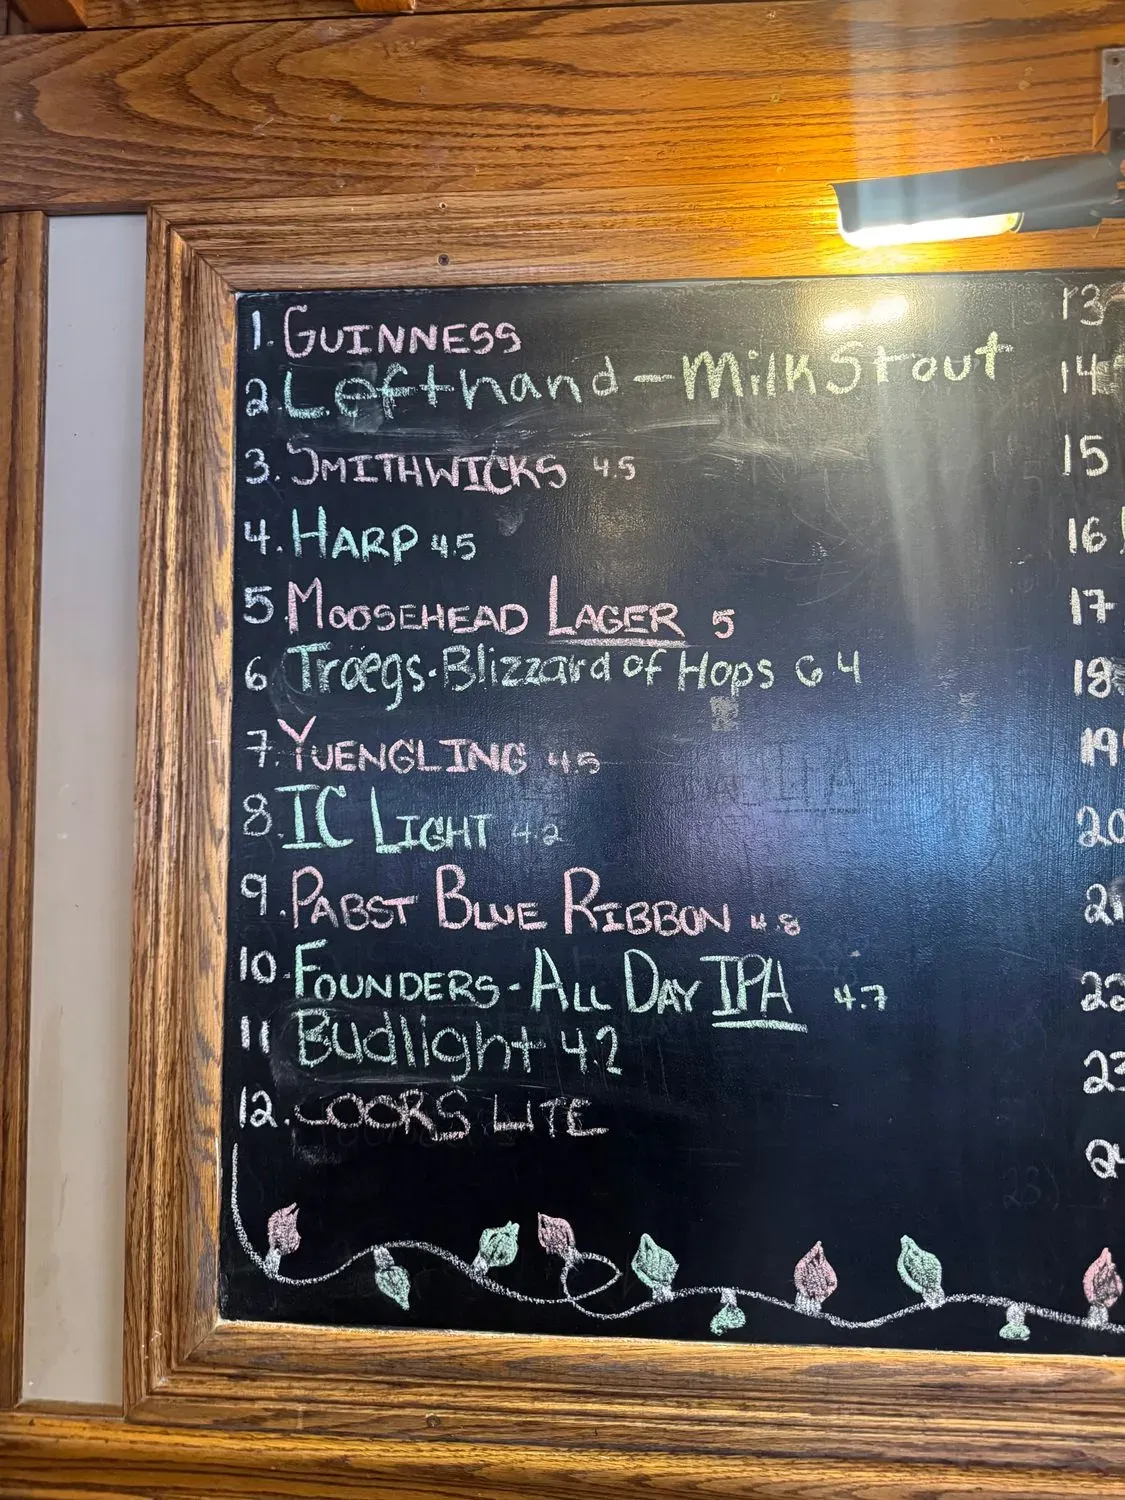 1. GUINNESS
2. Lefthand - Milk Stout
3. SMITHWICKS 4.5
4. HARP 4.5
5. MOOSEHEAD LAGER 5
6 Traegs. Blizzard of Hops 6.4
7. YUENGLING 4.5
8. IC LIGHT 4.2
9. PABST BLUE RIBBON 4.8
10. FOUNDERS - ALL DAY IPA 4.7
11 Budlight 4.2
12. COORS LITE
13
14
15
16
17
18
19
20
21
22
23
24